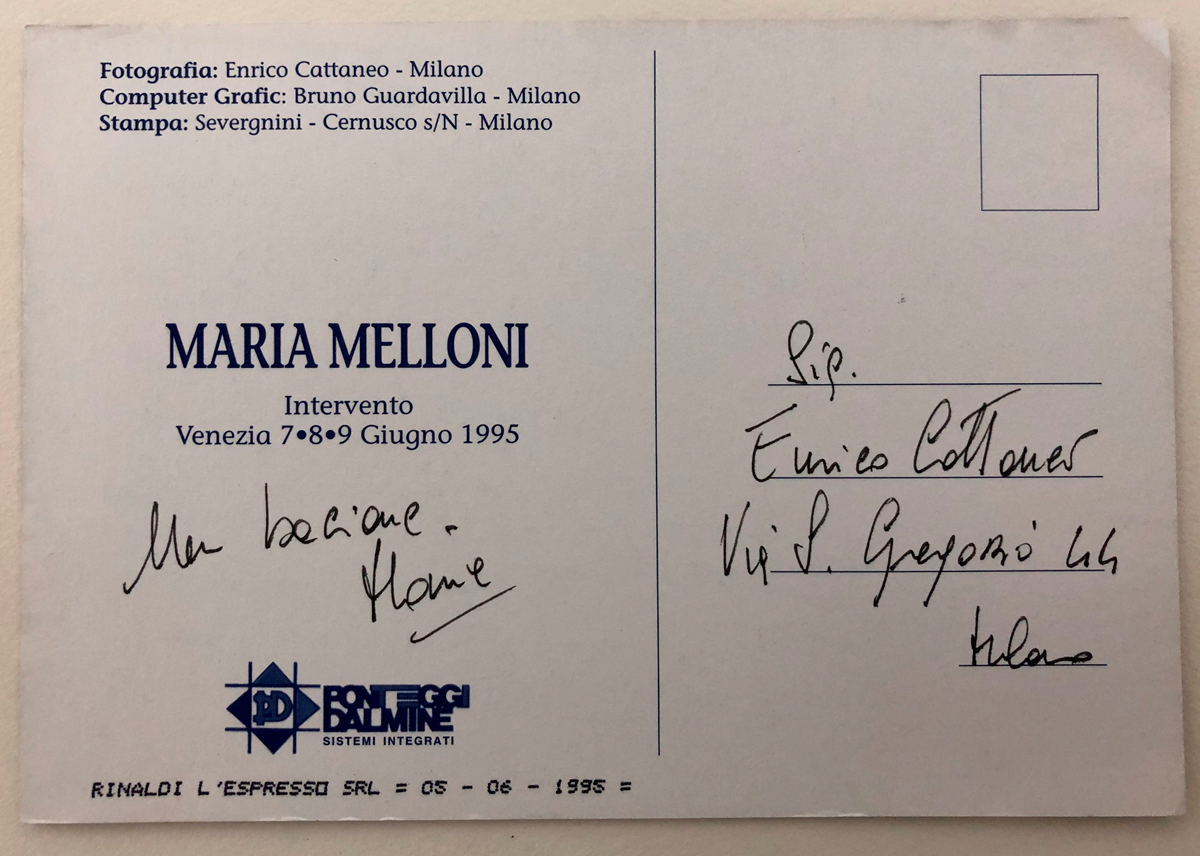 Fotografia: Enrico Cattaneo - Milano
Computer Grafic: Bruno Guardavilla - Milano
Stampa: Severgnini - Cernusco s/N - Milano
MARIA MELLONI
Intervento
Venezia 7•8•9 Giugno 1995
bacione.
PD PONTEGGI
DALMINE
SISTEMI INTEGRATI
RINALDI L'ESPRESSO SRL = 05 - 06 - 1995 =
Sig.
Enrico Cattaneo
Via S. Gregorio 44
Milano